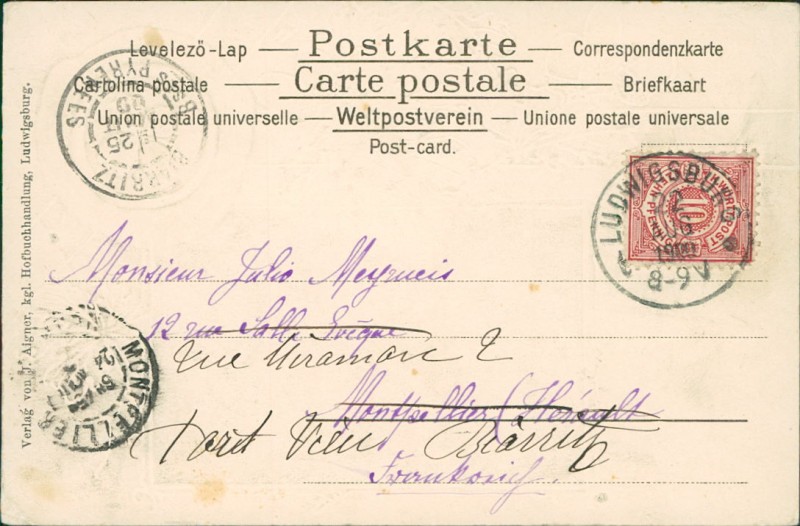 Levelező-Lap — Postkarte — Correspondenzkarte
Cartolina postale — Carte postale — Briefkaart
Union postale universelle — Weltpostverein — Unione postale universale
Post-card.
BIARRITZ
BSES PYRENEES
25
LUDWIGSBURG
1900
8-9V
K. WÜRTT. POST
10
ZEHN PFENNIG
Monsieur Julio Meyrueis
12 rue Salle Evêque
rue Miramar 2
Montpellier (Hérault
Port Vieu Biarritz
Frankreich
MONTPELLIER
Verlag von J. Aigner, kgl. Hofbuchhandlung, Ludwigsburg.